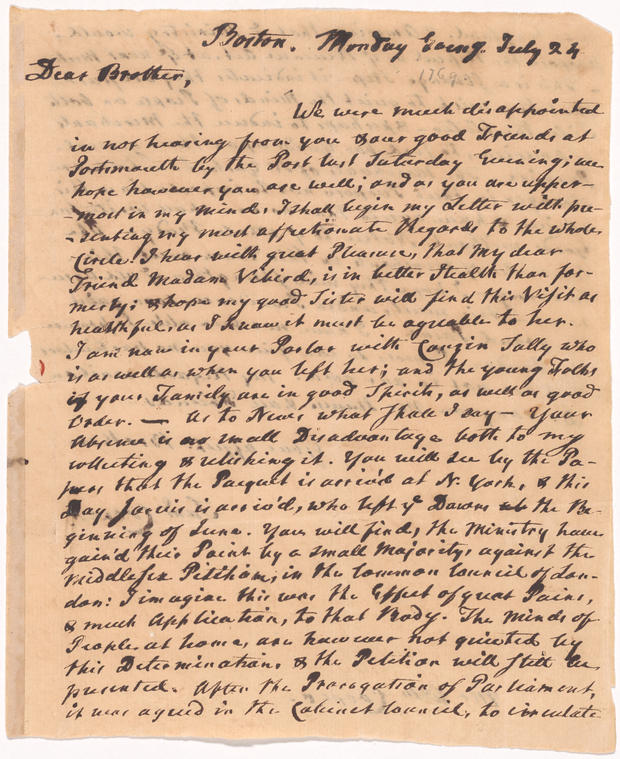 Boston. Monday Eveng. July 24
1769
Dear Brother,
We were much disappointed
in not hearing from you & our good Friends at
Portsmouth by the Post last Saturday Evening; we
hope however you are well; and as you are upper-
-most in my mind, I shall begin my Letter with pre-
-senting my most affectionate Regards to the whole
Circle. I hear with great Pleasure, that my dear
Friend Madam Vibird, is in better Health than for-
merly; & hope my good Sister will find this Visit as
healthful as I know it must be agreable to her.
I am now in your Parlor with Cousin Sally who
is as well as when you left her; and the young Folks
of your Family are in good Spirits, as well as good
Order. — As to News what shall I say — Your
Absence is no small Disadvantage both to my
collecting & relishing it. You will see by the Pa-
pers that the Pacquet is arriv'd at N. York, & this
Day Jarvis is arriv'd, who left ye Downs the Be-
ginning of June. You will find, the Ministry have
gain'd their Point by a small Majority, against the
Middlesex Petition, in the Common Council of Lon-
don: I imagine this was the Effect of great Pains,
& much Application, to that Body. The Minds of
People at home, are however not quieted by
this Determination & the Petition will still be
presented. After the Prorogation of Parliament,
it was agreed in the Cabinet Council, to circulate